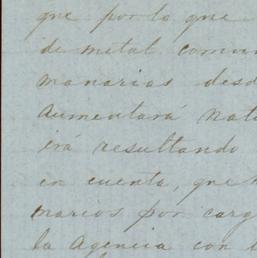 que por lo que
de metal comun
manarias desd
aumentará nat
irá resultando
en cuenta, que
marios por carg
la Agencia con